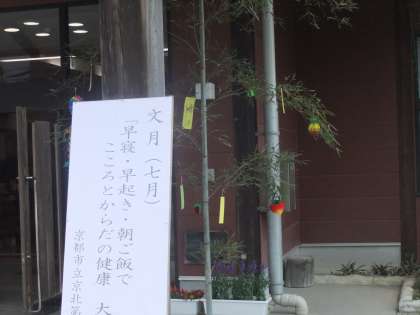 文月(七月)
「早寝・早起き・朝ご飯で
こころとからだの健康 大
京都市立京北第